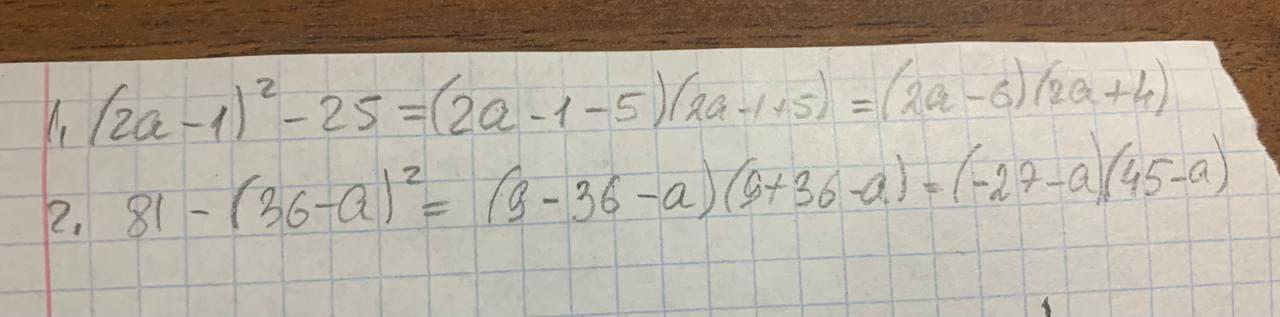 1. (2a-1)² - 25 = (2a - 1 - 5)(2a - 1 + 5) = (2a - 6)(2a + 4)
2. 81 - (36 - a)² = (9 - 36 - a)(9 + 36 - a) = (-27 - a)(45 - a)